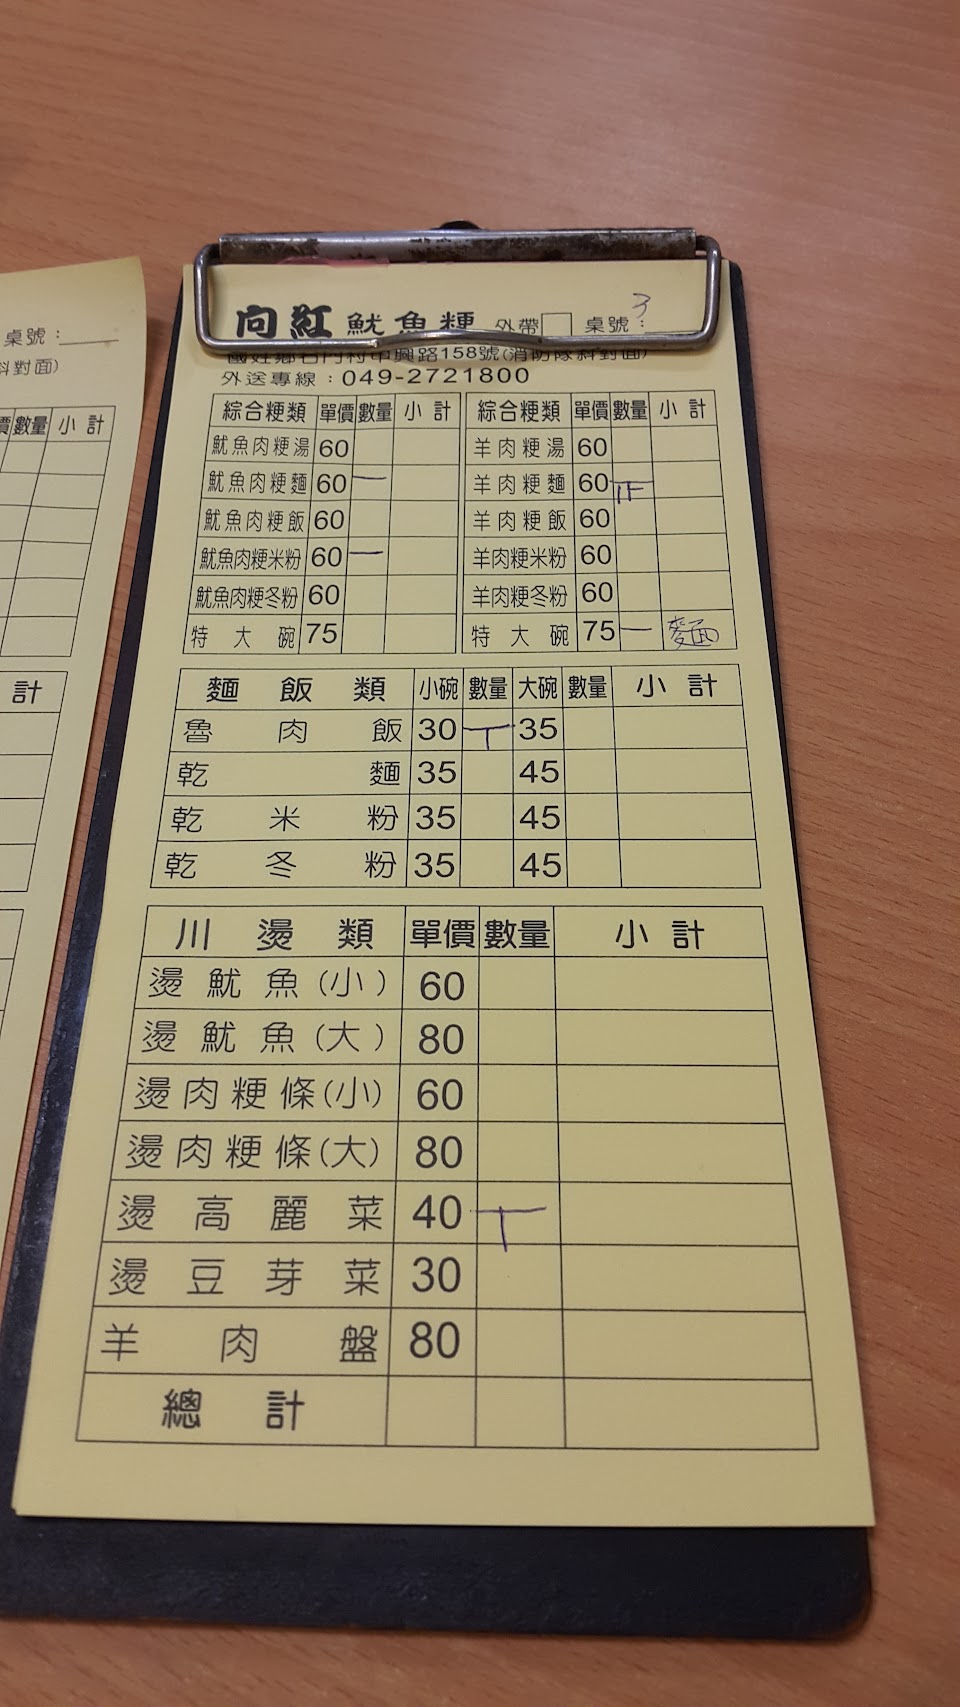 向紅魷魚粳 外帶□ 桌號：3
國姓鄉石門村中興路158號(消防隊斜對面)
外送專線：049-2721800
綜合粳類 單價 數量 小計 綜合粳類 單價 數量 小計
魷魚肉粳湯 60 羊肉粳湯 60
魷魚肉粳麵 60 一 羊肉粳麵 60
魷魚肉粳飯 60 羊肉粳飯 60
魷魚肉粳米粉 60 一 羊肉粳米粉 60
魷魚肉粳冬粉 60 羊肉粳冬粉 60
特大碗 75 特大碗 75 一 麵
麵飯類 小碗 數量 大碗 數量 小計
魯肉飯 30 丅 35
乾麵 35 45
乾米粉 35 45
乾冬粉 35 45
川燙類 單價 數量 小計
燙魷魚(小) 60
燙魷魚(大) 80
燙肉粳條(小) 60
燙肉粳條(大) 80
燙高麗菜 40 丅
燙豆芽菜 30
羊肉盤 80
總計
桌號：
斜對面)
價 數量 小計
計